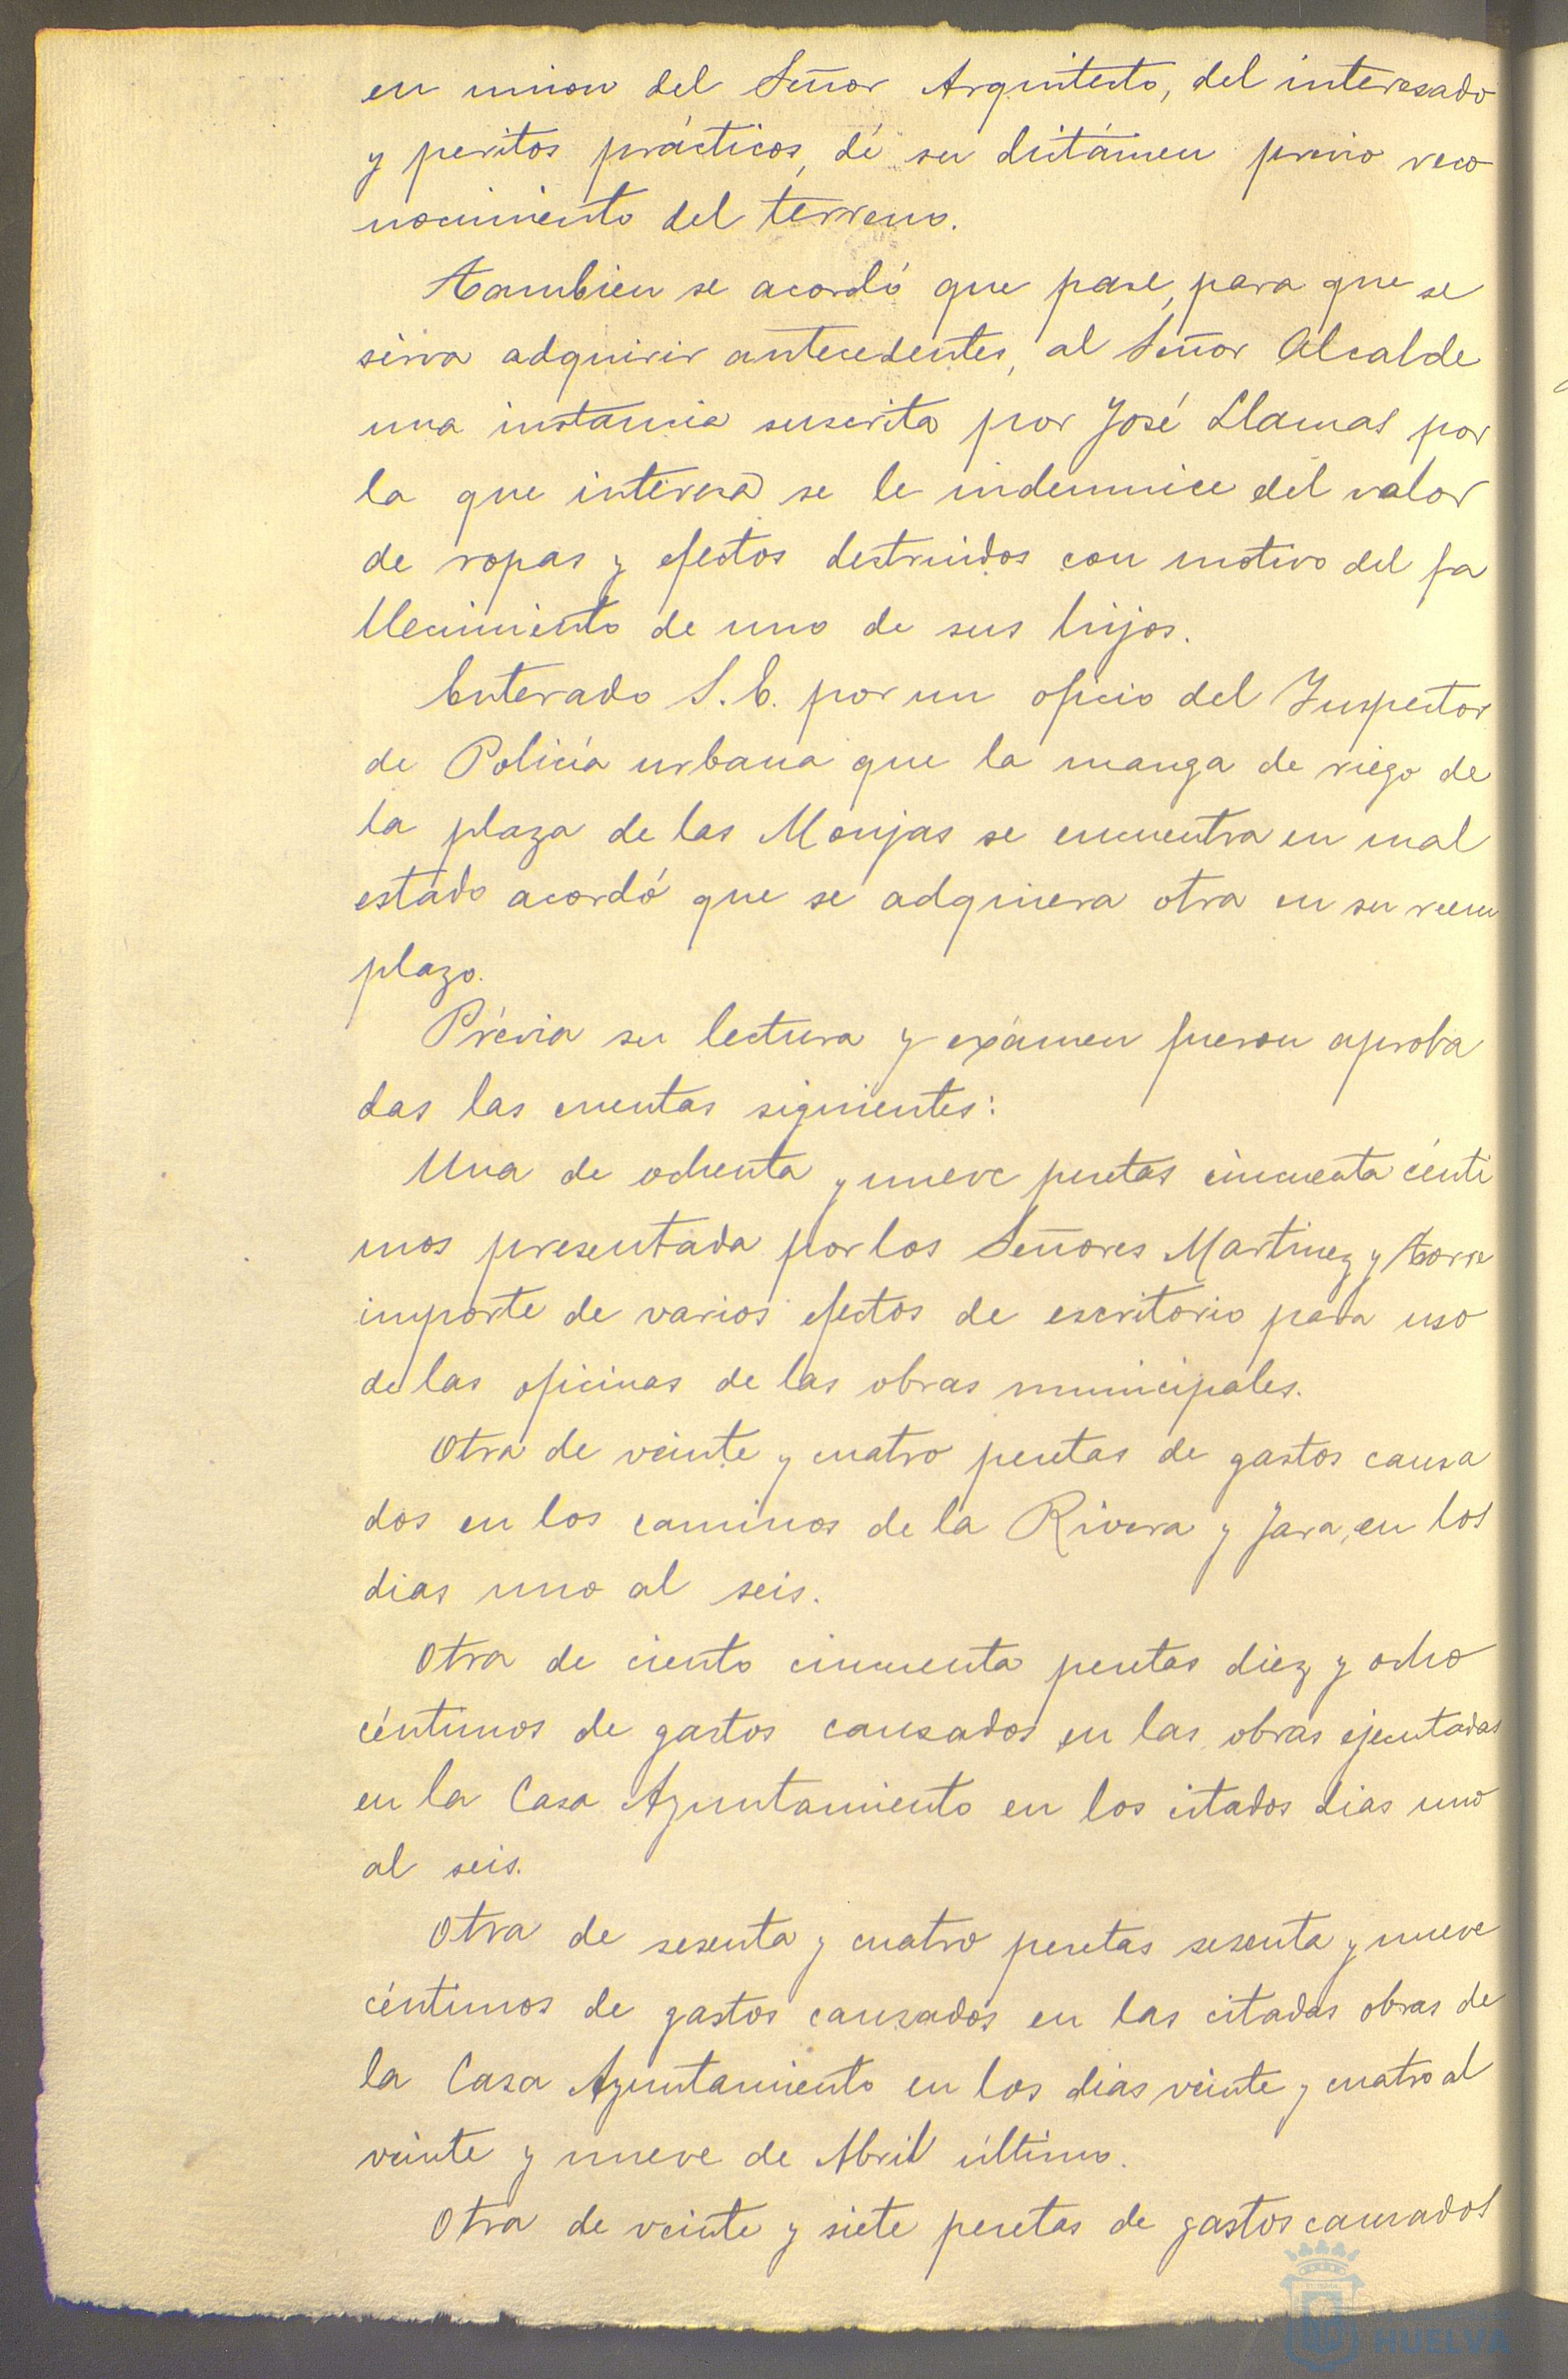 en union del Señor Arquitecto, del interesado
y peritos prácticos, dé su dictámen previo reco
nocimiento del terreno.
Tambien se acordó que pase, para que se
sirva adquirir antecedentes, al Señor Alcalde
una instancia suscrita por José Llamas por
la que interesa se le indemnice del valor
de ropas y efectos destruidos con motivo del fa
llecimiento de uno de sus hijos.
Enterado S.E. por un oficio del Inspector
de Policía urbana que la manga de riego de
la plaza de las Monjas se encuentra en mal
estado acordó que se adquiera otra en su reem
plazo.
Prévia su lectura y exámen fueron aproba
das las cuentas siguientes:
Una de ochenta y nueve pesetas cincuenta cénti
mos presentada por los Señores Martinez y Torre
importe de varios efectos de escritorio para uso
de las oficinas de las obras municipales.
Otra de veinte y cuatro pesetas de gastos causa
dos en los caminos de la Rivera y Jara, en los
dias uno al seis.
Otra de ciento cincuenta pesetas diez y ocho
céntimos de gastos causados en las obras ejecutadas
en la Casa Ayuntamiento en los citados dias uno
al seis.
Otra de sesenta y cuatro pesetas sesenta y nueve
céntimos de gastos causados en las citadas obras de
la Casa Ayuntamiento en los dias veinte y cuatro al
veinte y nueve de Abril último.
Otra de veinte y siete pesetas de gastos causados
HUELVA